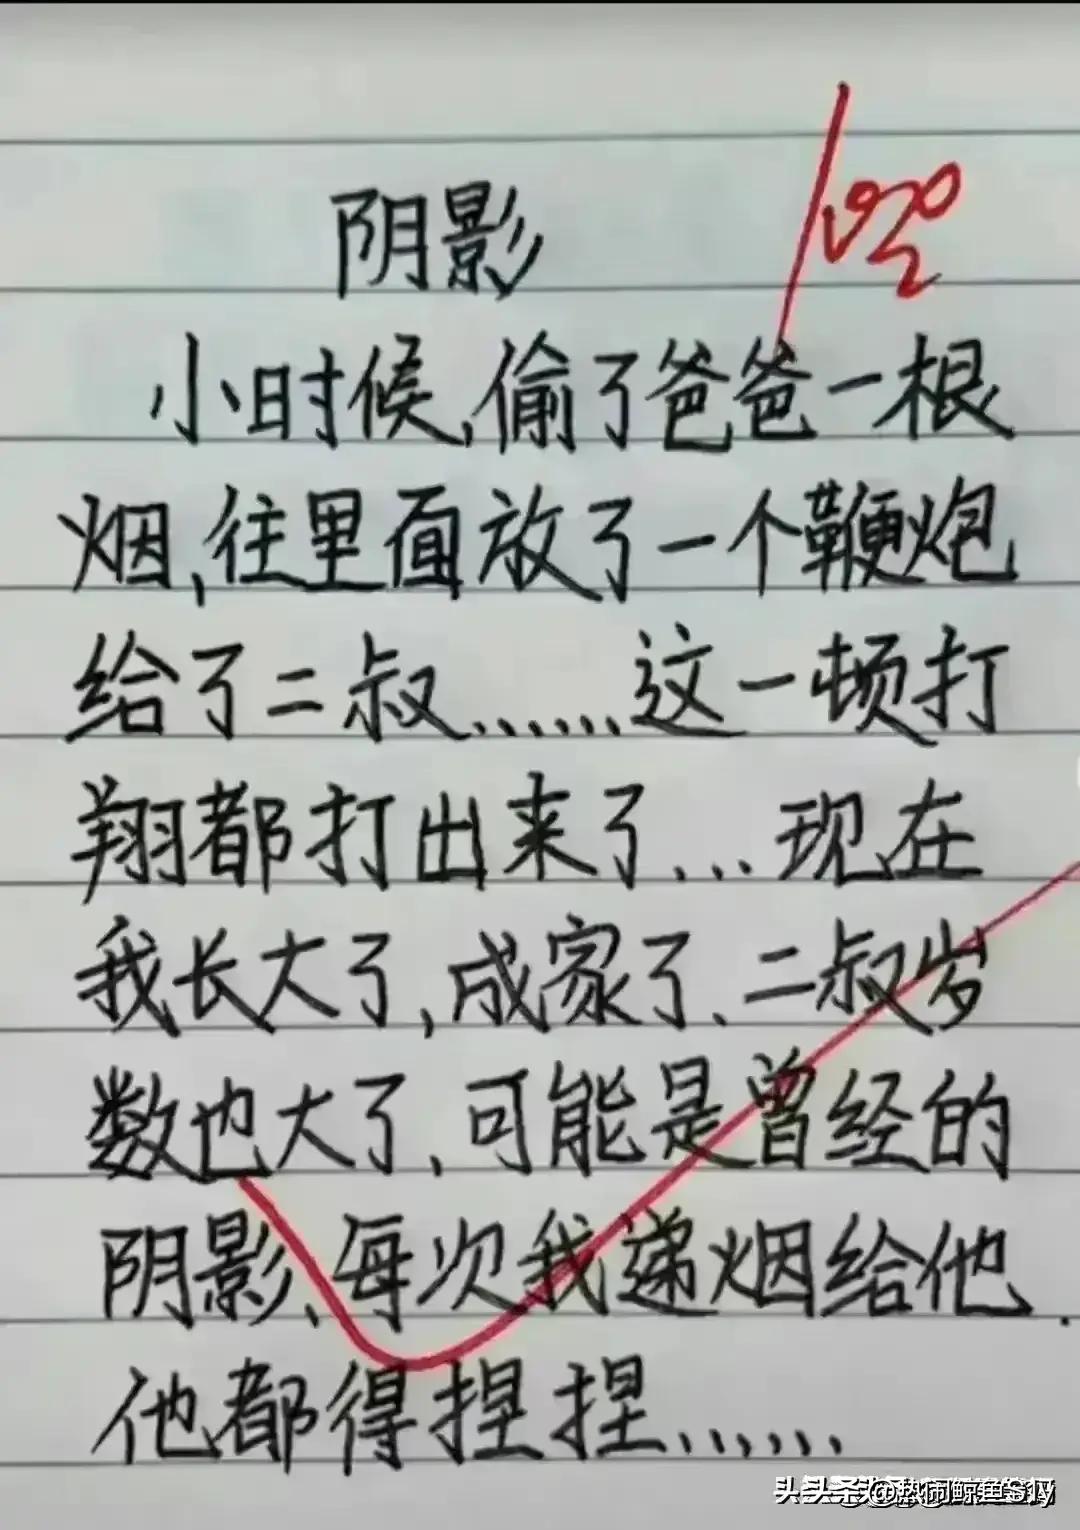 阴影
小时候,偷了爸爸一根
烟,往里面放了一个鞭炮
给了二叔......这一顿打
翔都打出来了...现在
我长大了,成家了、二叔岁
数也大了、可能是曾经的
阴影、每次我递烟给他.
他都得捏捏......